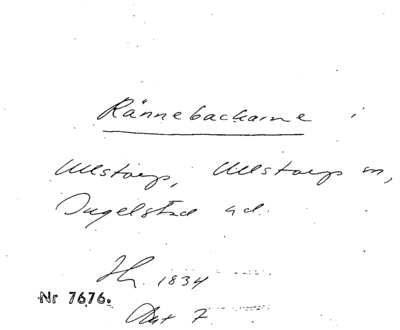 Rännebackarne i
Ullstorp, Ullstorp sn,
Ingelstad hd.
1834
Nr 7676.
Akt 7